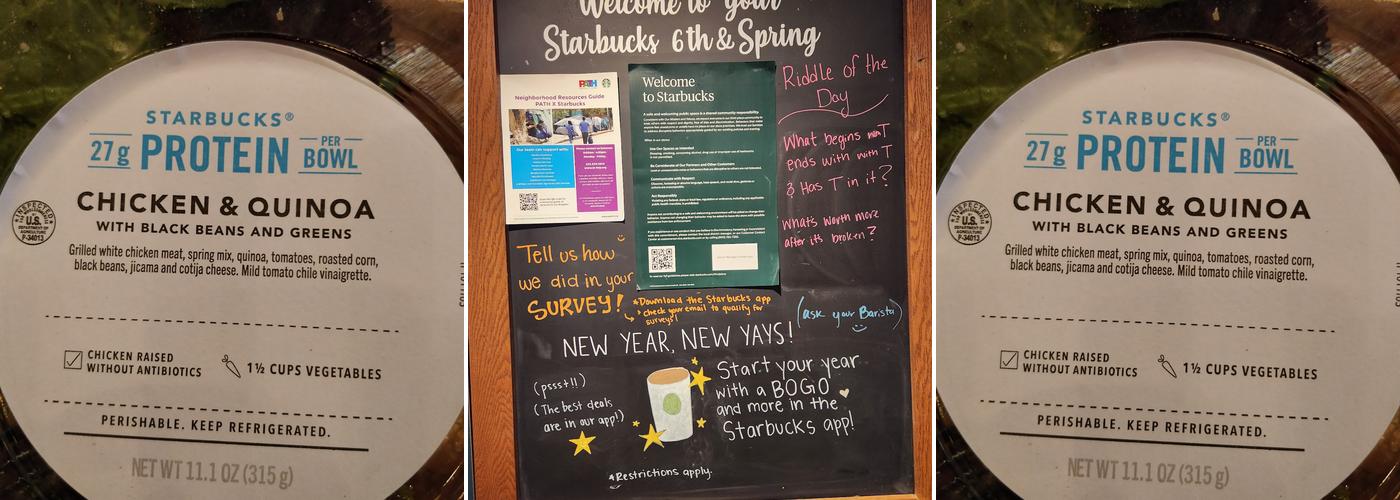 STARBUCKS®
27g PROTEIN PER BOWL
CHICKEN & QUINOA
WITH BLACK BEANS AND GREENS
INSPECTED
U.S.
DEPARTMENT OF
AGRICULTURE
P-34013
Grilled white chicken meat, spring mix, quinoa, tomatoes, roasted corn,
black beans, jicama and cotija cheese. Mild tomato chile vinaigrette.
CHICKEN RAISED
WITHOUT ANTIBIOTICS
1½ CUPS VEGETABLES
PERISHABLE. KEEP REFRIGERATED.
NET WT 11.1 OZ (315 g)
Welcome to your
Starbucks 6th & Spring
PATH
Neighborhood Resources Guide
PATH X Starbucks
Our team can support with:
Welcome
to Starbucks
A safe and welcoming public space is a shared community responsibility.
Use Our Spaces as Intended
Be Considerate of Our Partners and Other Customers
Communicate with Respect
Act Responsibly
Riddle of the
Day
What begins T
ends with with T
& Has T in it?
what's worth more
after its broken?
(ask your Barista)
Tell us how
we did in your
SURVEY!
*Download the Starbucks app
* check your email to qualify for
surveys!
NEW YEAR, NEW YAYS!
(psst!!)
(The best deals
are in our app!)
Start your year
with a BOGO
and more in the
Starbucks app!
*Restrictions apply.
STARBUCKS®
27g PROTEIN PER BOWL
CHICKEN & QUINOA
WITH BLACK BEANS AND GREENS
INSPECTED
U.S.
DEPARTMENT OF
AGRICULTURE
P-34013
Grilled white chicken meat, spring mix, quinoa, tomatoes, roasted corn,
black beans, jicama and cotija cheese. Mild tomato chile vinaigrette.
CHICKEN RAISED
WITHOUT ANTIBIOTICS
1½ CUPS VEGETABLES
PERISHABLE. KEEP REFRIGERATED.
NET WT 11.1 OZ (315 g)